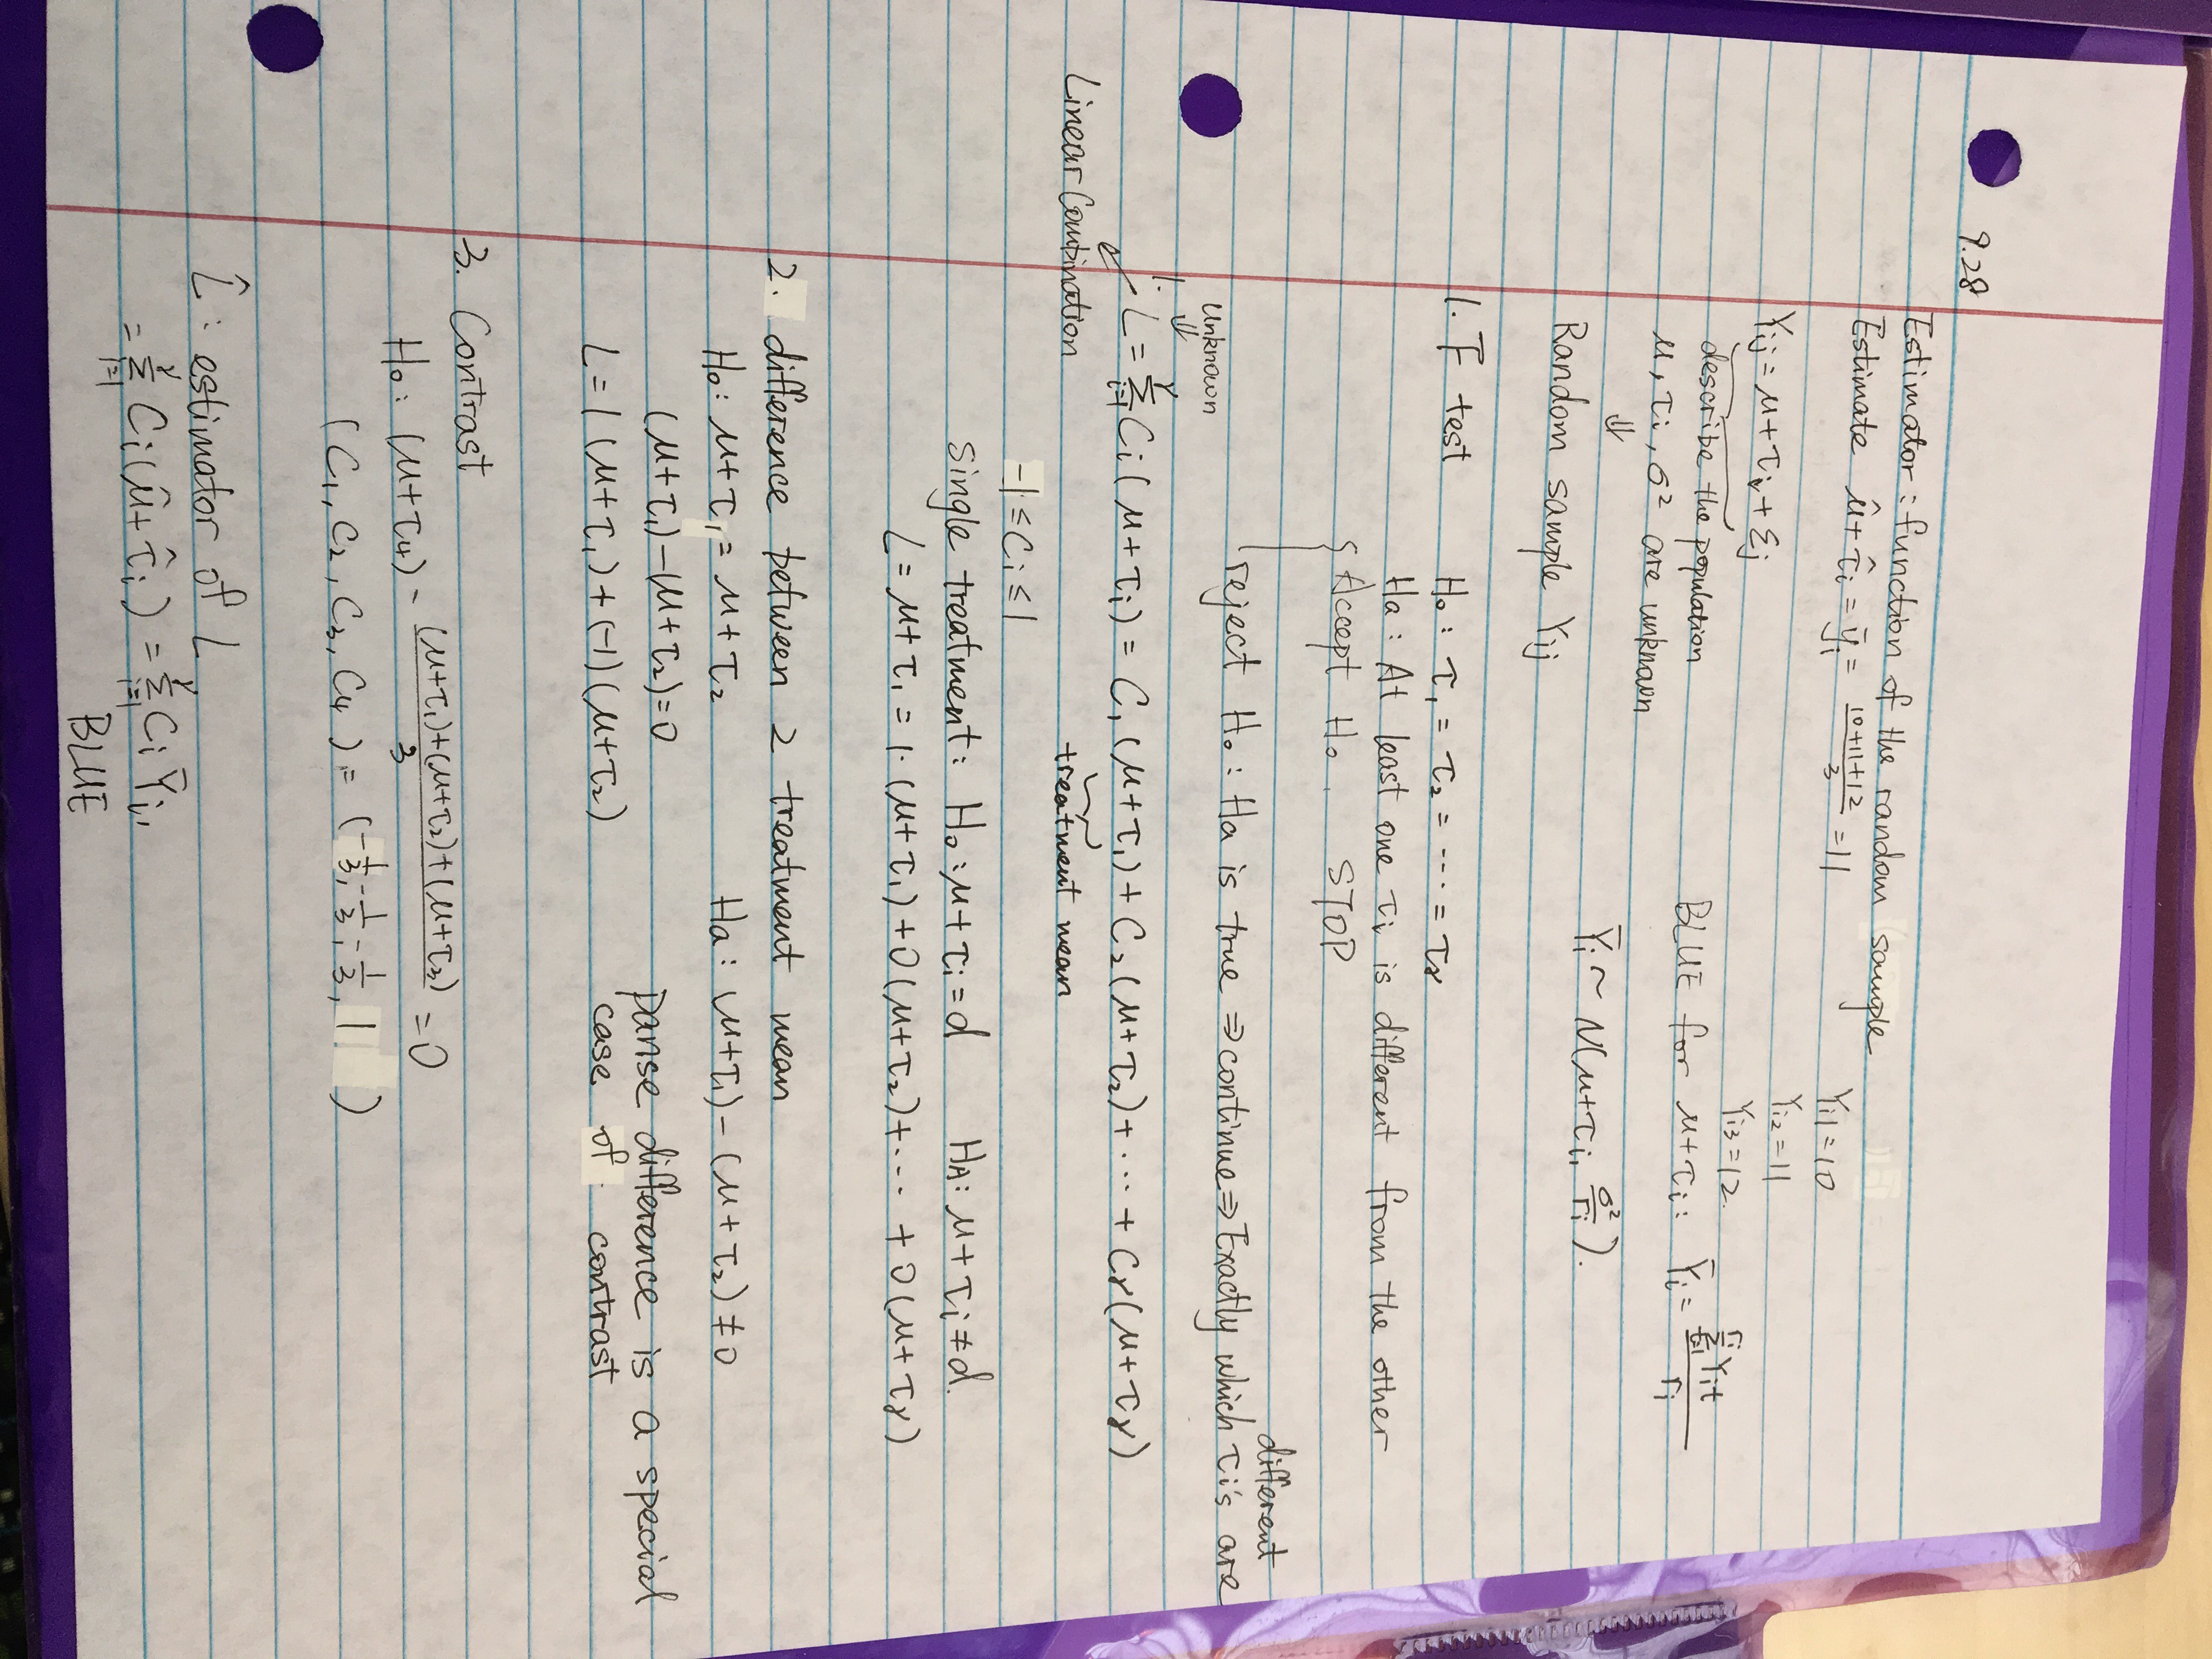 9.28
Estimator : function of the random sample
Estimate μ̂+τ̂i = ȳi = (10+11+12)/3 = 11
Yi1 = 10
Yi2 = 11
Yi3 = 12.
Yij = μ+τi+εj
describe the population
μ, τi, σ² are unknown
BLUE for μ+τi: Ȳi = Σ(t=1 to ri) Yit / ri
⇓
Random sample Yij
Ȳi ~ N(μ+τi, σ²/ri).
1. F test H0 : τ1 = τ2 = ---- = τr
Ha : At least one τi is different from the other
{ Accept H0. STOP
reject H0 : Ha is true ⇒ continue ⇒ Exactly which τi's are different
Unknown
⇓
1. L = Σ(i=1 to r) Ci (μ+τi) = C1 (μ+τ1) + C2 (μ+τ2) + ··· + Cr (μ+τr)
Linear Combination
treatment mean
-1 ≤ Ci ≤ 1
single treatment : H0 : μ+τi = d HA : μ+τi ≠ d.
L = μ+τ1 = 1·(μ+τ1) + 0(μ+τ2) + ··· + 0(μ+τr)
2. difference between 2 treatment mean
H0 : μ+τ1 = μ+τ2 Ha : (μ+τ1) - (μ+τ2) ≠ 0
(μ+τ1) - (μ+τ2) = 0
L = 1 (μ+τ1) + (-1) (μ+τ2)
difference is a special
case of contrast
3. Contrast
H0 : (μ+τ4) - ((μ+τ1)+(μ+τ2)+(μ+τ3))/3 = 0
(C1, C2, C3, C4) = (-1/3, -1/3, -1/3, 1)
L̂ : estimator of L
= Σ(i=1 to r) Ci (μ̂+τ̂i) = Σ(i=1 to r) Ci Ȳi.
BLUE